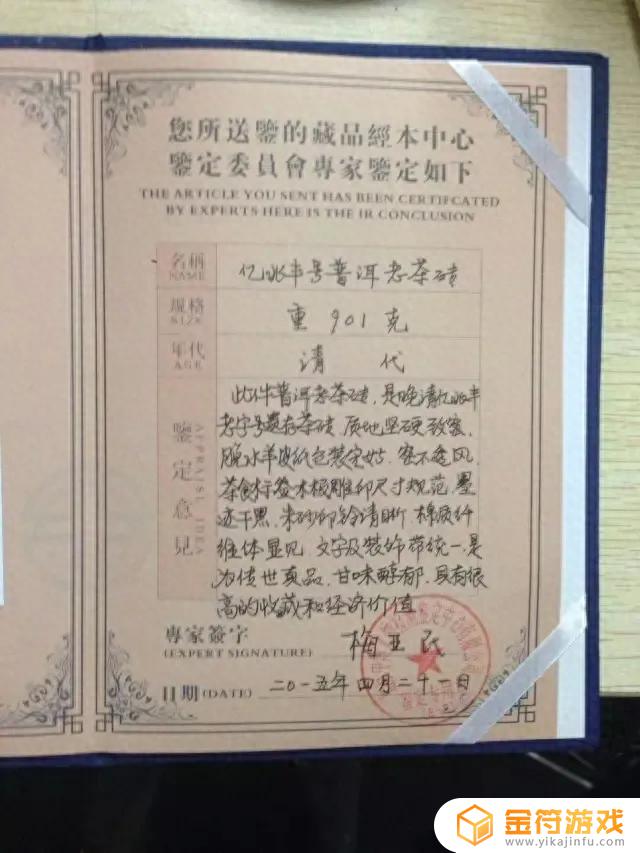 您所送鑒的藏品經本中心
鑒定委員會專家鑒定如下
THE ARTICLE YOU SENT HAS BEEN CERTIFCATED
BY EXPERTS HERE IS THE IR CONCLUSION
名稱 亿兆丰号普洱老茶砖
NAME
規格 重901克
SIZE
年代 清代
AGE
鑒定意見
APPRAISL IDEA
此件普洱老茶砖,是晚清亿兆丰
老字号遗存茶砖,质地坚硬致密,
脱水羊皮纸包装完好,密不透风,
茶食标签木板雕印尺寸规范,墨
迹干黑,朱砂印钤清晰,棉质纤
维体显见,文字及装饰带统一,是
为传世真品,甘味醇郁,具有很
高的收藏和经济价值
專家簽字 梅亚民
(EXPERT SIGNATURE)
日期(DATE) 二〇一五年四月二十一日
金符游戏
www.yikajinfu.com